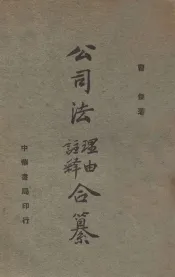 著
公司法
理由
註釋
合纂
中華書局印行